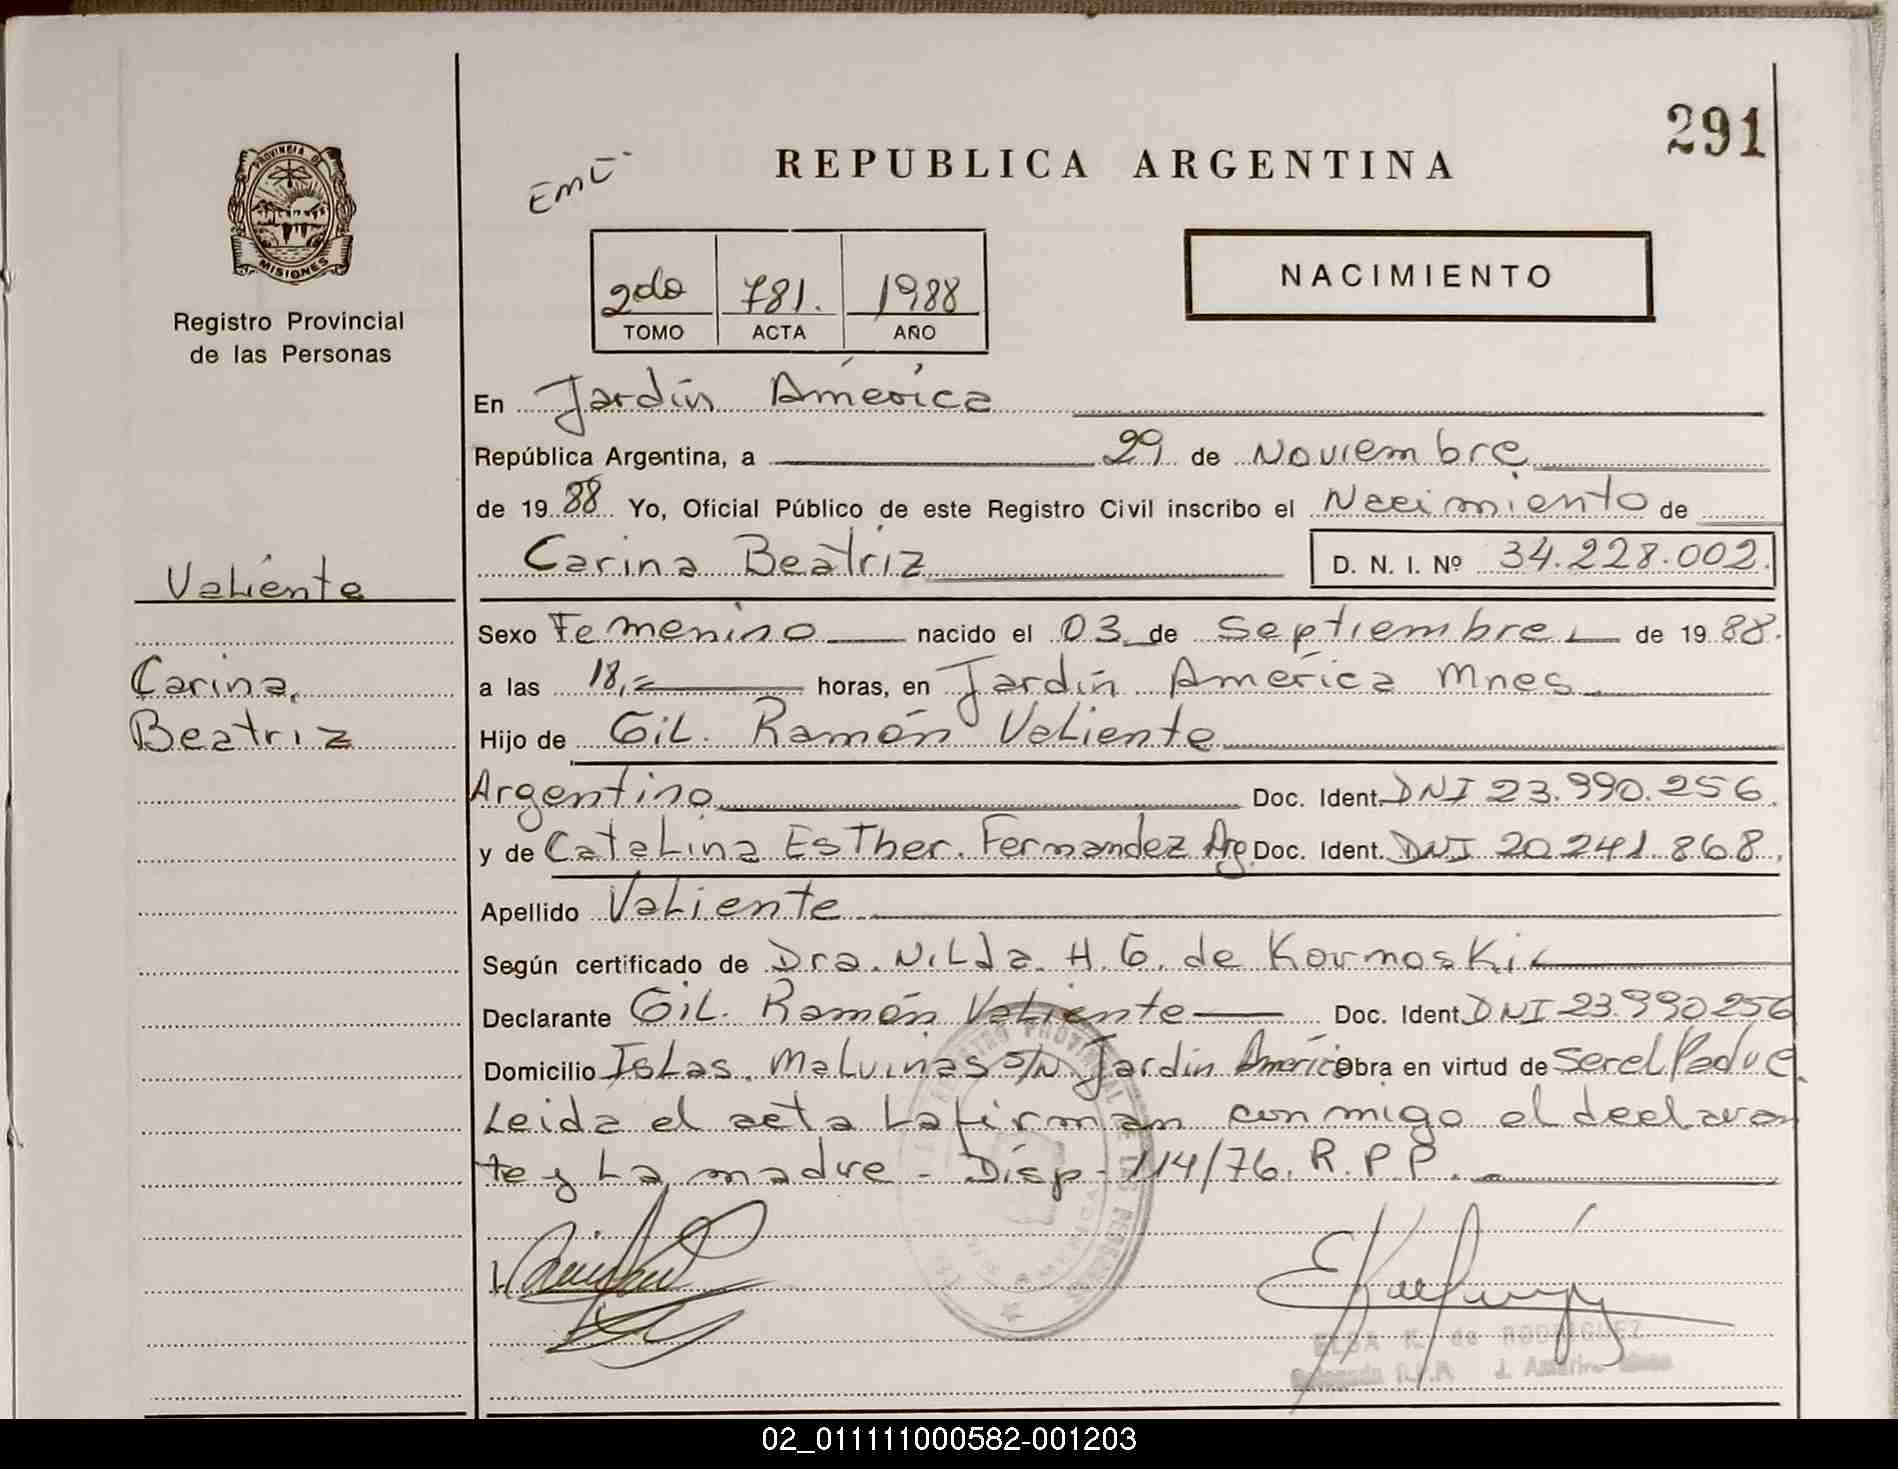 291
Emi
REPUBLICA ARGENTINA
PROVINCIA DE
MISIONES
Registro Provincial
de las Personas
2do 781. 1988
TOMO ACTA AÑO
NACIMIENTO
En Jardín América
República Argentina, a 29 de Noviembre
de 19 88 Yo, Oficial Público de este Registro Civil inscribo el Nacimiento de
Carina Beatriz D. N. I. Nº 34.228.002.
Valiente
Carina,
Beatriz
Sexo Femenino nacido el 03 de Septiembre de 19 88.
a las 18,= horas, en Jardín América Mnes
Hijo de Gil. Ramón Valiente
Argentino Doc. Ident. DNI 23.990.256.
y de Catalina Esther. Fernandez Arg Doc. Ident. DNI 20.241.868.
Apellido Valiente
Según certificado de Dra. Nilda H. G. de
Declarante Gil. Ramón Valiente Doc. Ident. DNI 23.990256
Domicilio Islas Malvinas s/N Jardín América Obra en virtud de Ser el Padre.
Leida el acta La firman conmigo el declaran
te y La madre - Disp - 114/76. R.P.P.
ELSA K. de RODRIGUEZ
02_011111000582-001203